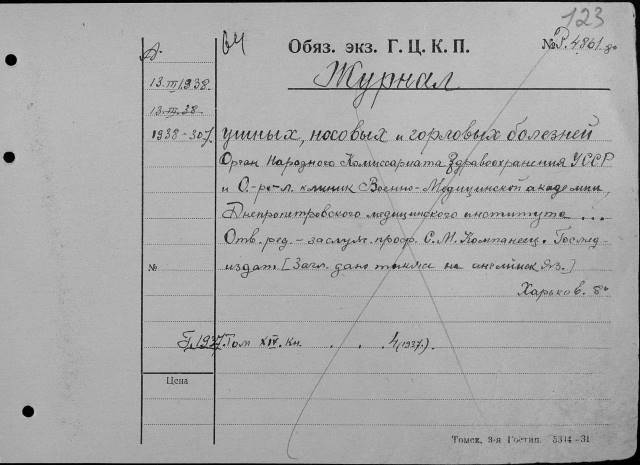 123
А. 64 Обяз. экз. Г. Ц. К. П. № Р.4861.8о
Журнал
13.III.1938
13.III.38
1938-307 ушных, носовых и горловых болезней
Орган Народного Комиссариата Здравоохранения УССР
и О.-ро-л. клиник Военно-Медицинской академии,
Днепропетровского медицинского института ...
Отв. ред. - заслуж. проф. С. М. Компанеец. Госмед-
№ издат [Загл. дано также на английск яз.]
Харьков. 8о
Г. 1937. Том XIV. Кн. . . 4 (1937).
Цена
Томск, 3-я Гостип. 5314-31